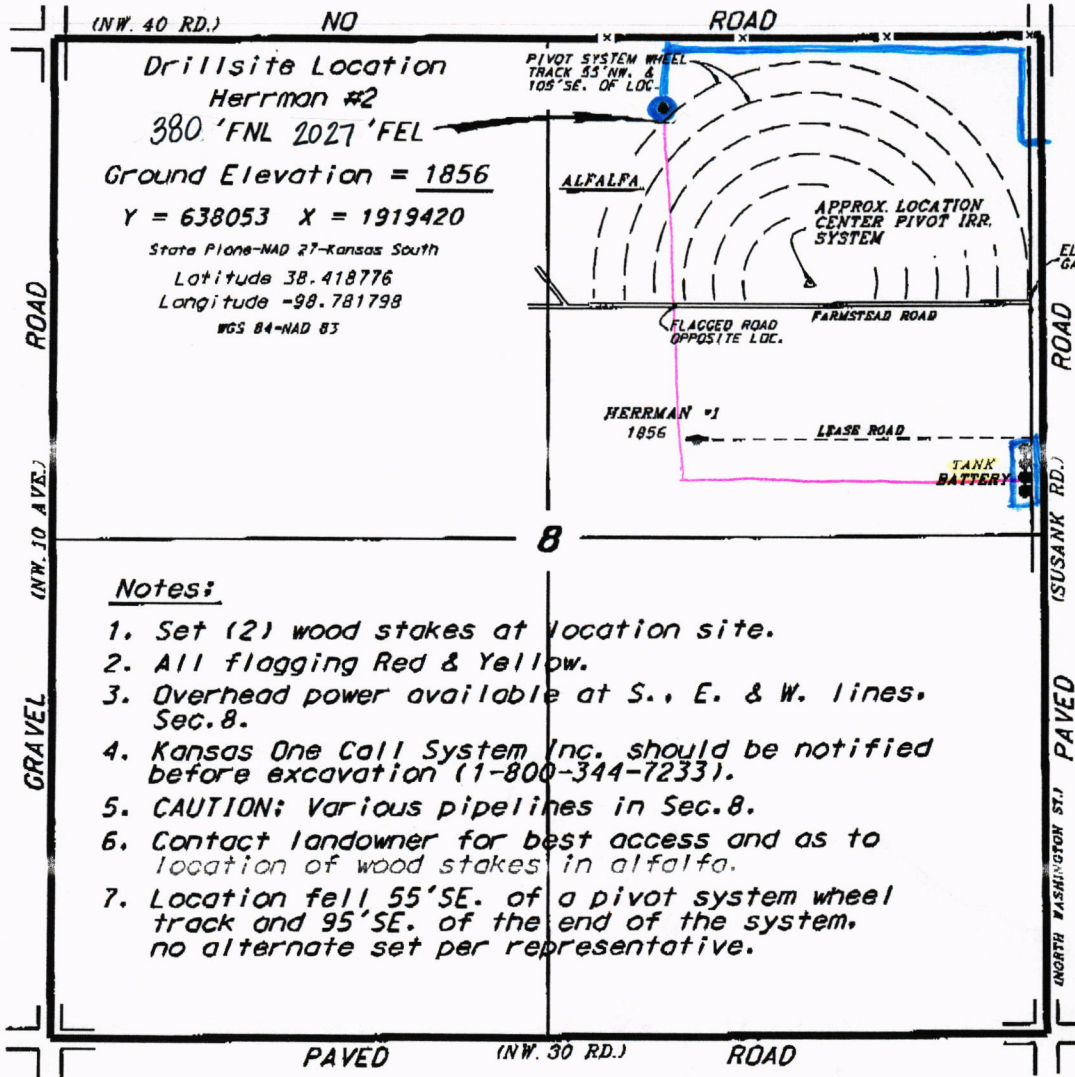 (NW. 40 RD.) NO ROAD
Drillsite Location
Herrman #2
380 'FNL 2027 'FEL
Ground Elevation = 1856
Y = 638053 X = 1919420
State Plane-NAD 27-Kansas South
Latitude 38.418776
Longitude -98.781798
WGS 84-NAD 83
PIVOT SYSTEM WHEEL
TRACK 55'NW. &
105'SE. OF LOC.
ALFALFA
APPROX. LOCATION
CENTER PIVOT IRR.
SYSTEM
FLAGGED ROAD
OPPOSITE LOC.
FARMSTEAD ROAD
EL
GA
HERRMAN #1
1856
LEASE ROAD
TANK
BATTERY
8
ROAD
(NW. 10 AVE.)
GRAVEL
ROAD
(SUSANK RD.)
PAVED
(NORTH WASHINGTON ST.)
Notes:
1. Set (2) wood stakes at location site.
2. All flagging Red & Yellow.
3. Overhead power available at S., E. & W. lines.
Sec.8.
4. Kansas One Call System Inc. should be notified
before excavation (1-800-344-7233).
5. CAUTION: Various pipelines in Sec.8.
6. Contact landowner for best access and as to
location of wood stakes in alfalfa.
7. Location fell 55'SE. of a pivot system wheel
track and 95'SE. of the end of the system.
no alternate set per representative.
PAVED (NW. 30 RD.) ROAD